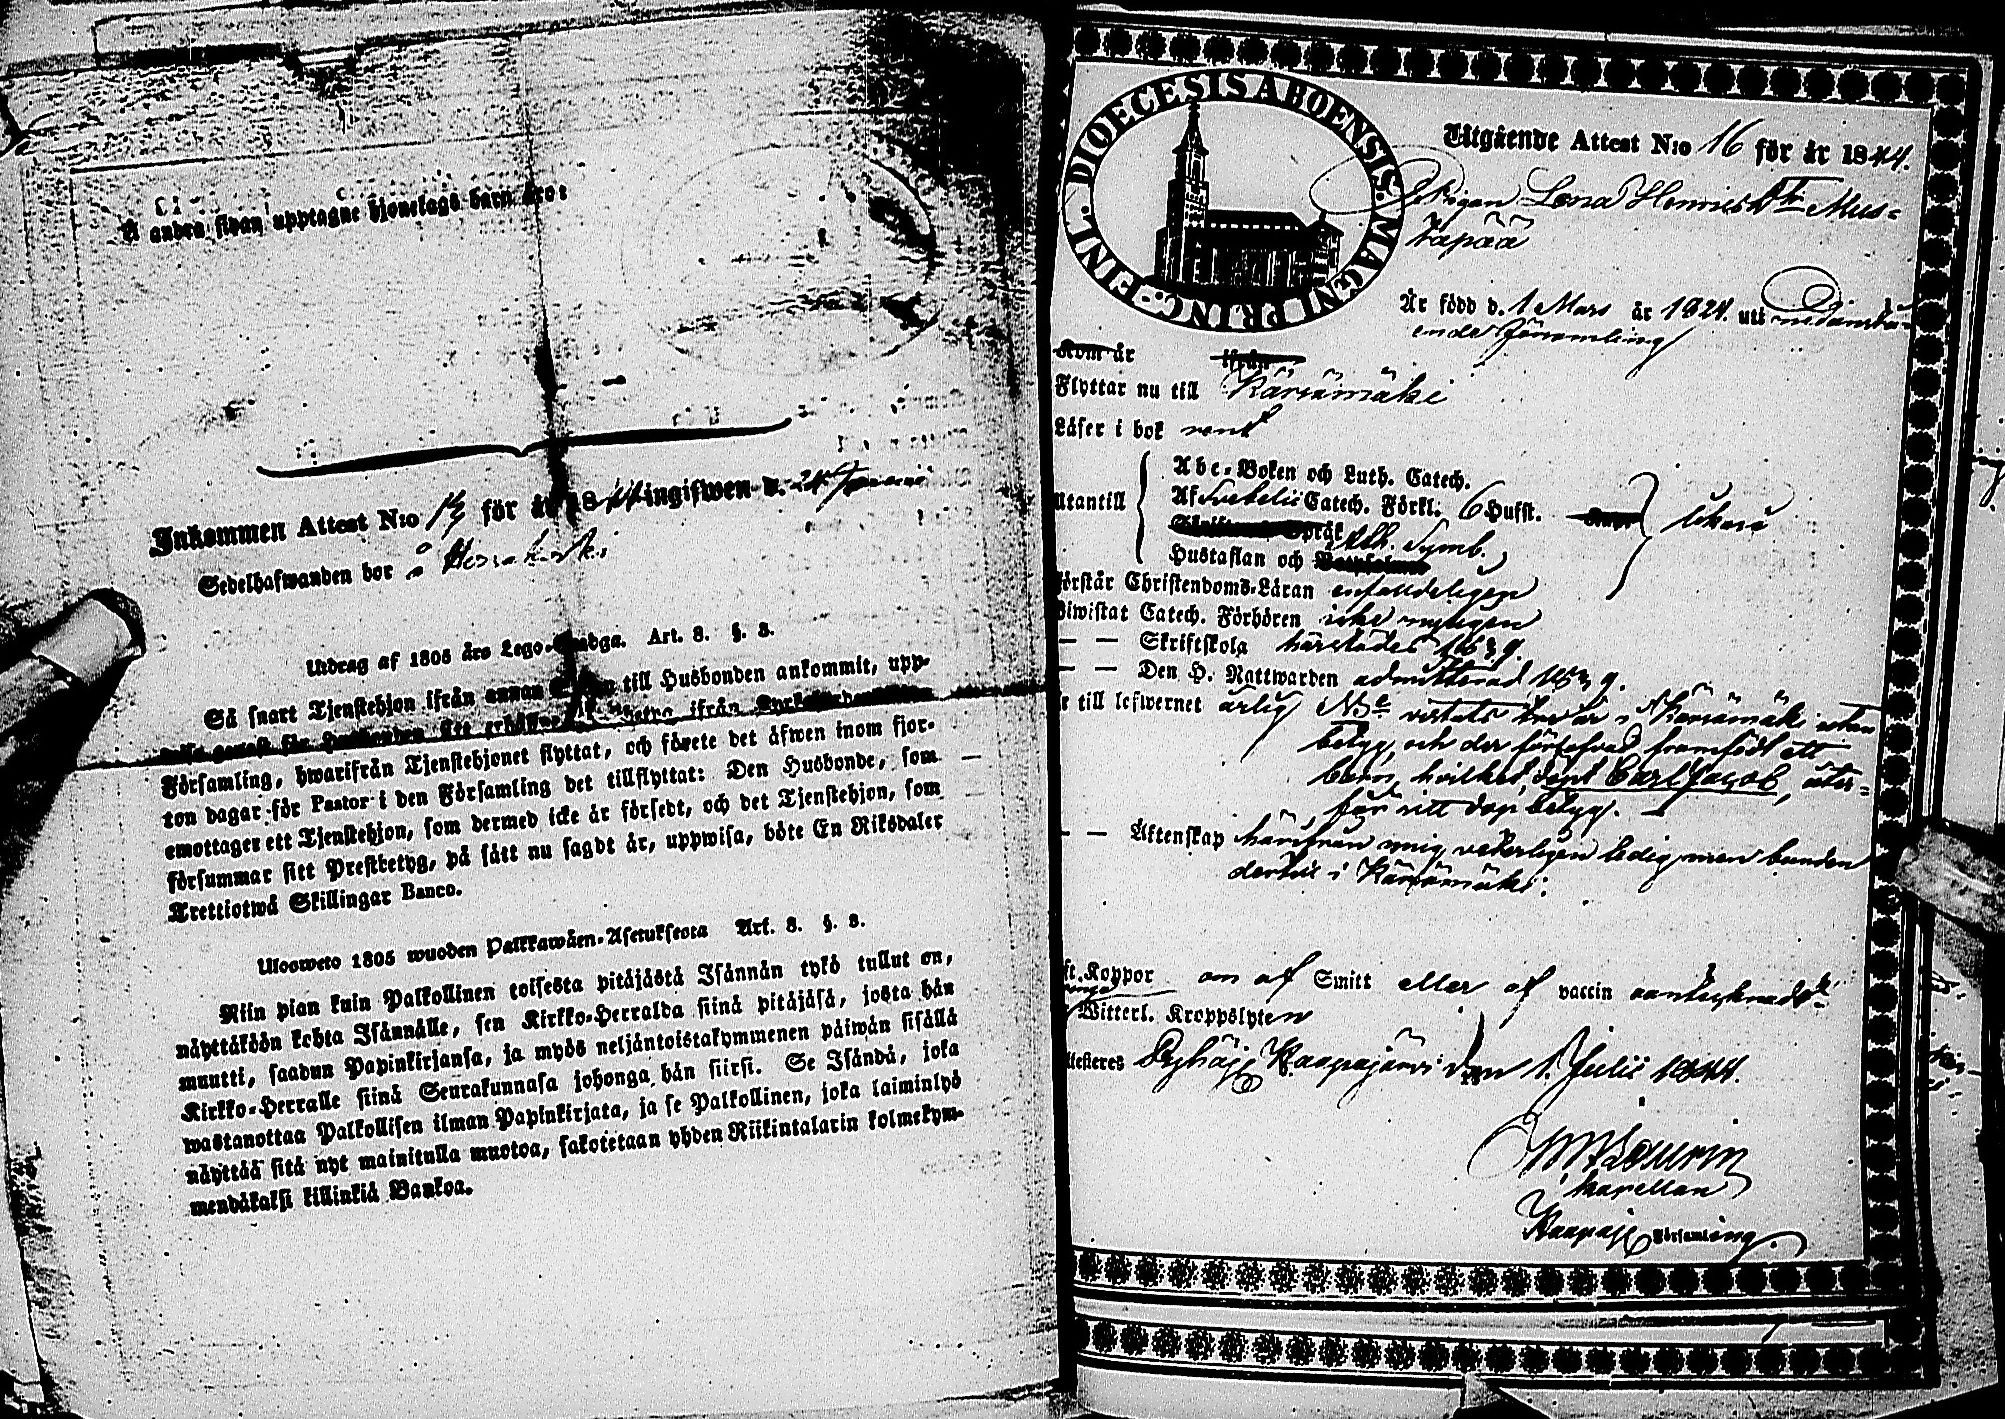 å andra sidan upptagne hjonelags barn äro:
Inkommen Attest N:o 13 för år 1844 ingifwen d. 24
Sedelhafwanden bor å
Utdrag af 1805 års Lego-Stadga. Art. 8. §. 3.
Så snart Tjenstehjon ifrån annan till Husbonden ankommit, upp-
Församling, hwarifrån Tjenstehjonet flyttat, och förete det äfwen inom fjor-
ton dagar för Pastor i den Församling det tillflyttat: Den Husbonde, som
emottager ett Tjenstehjon, som dermed icke är försedt, och det Tjenstehjon, som
försummar sitt Prestbetyg, på sätt nu sagdt är, uppwisa, böte En Riksdaler
Trettiotwå Skillingar Banco.
Uloswets 1805 wuoden Palkkawäen-Asetuksesta Art. 8. §. 3.
Niin pian kuin Palkollinen toisesta pitäjästä Isännän tykö tullut on,
näyttäköön kohta Isännälle, sen Kirkko-Herralda siinä pitäjäsä, josta hän
muutti, saadun Papinkirjansa, ja myös neljäntoistakymmenen päiwän sisällä
Kirkko-Herralle siinä Seurakunnasa johonga hän siirsi. Se Isändä, joka
wastanottaa Palkollisen ilman Papinkirjata, ja se Palkollinen, joka laiminlyö
näyttää sitä nyt mainitulla muotoa, sakotetaan yhden Riikintalarin kolmekym-
mendäkaksi killinkiä Bankoa.
DIOECESIS ABOENSIS. MAGNI PRINC.-FINL.
Utgående Attest N:o 16 för år 1844.
Pigan Lena Henricsdtr Mus-
tapää
Är född d. 1 Mars år 1821. uti nedanstå-
ende församling
Kom år ifrån
Flyttar nu till Kärsämäki
Läser i bok rent
Utantill
Abc-Boken och Luth. Catech.
Af Svebelii Catech. Förkl. 6 Hufst.
Språk Ath. Symb.
Hustaflan och
lika så
Förstår Christendoms-Läran enfaldeligen
Biwistat Catech. Förhören icke nyligen
— — Skriftskola härstädes 1839.
— — Den H. Nattwarden admitterad 1839.
Är till lefwernet ärlig Na vistats två år i Kärsämäki utan
betyg, och der framfödt ett
barn, hvilket, döpt Carl Jacob, åter-
för sitt dop betyg.
— — Äktenskap härifrån mig veterligen ledig, men bunden
dertill i Kärsämäki.
Koppor om af Smitt eller af vaccin oantecknadt
Witterl. Kroppslyten
testeres Pyhäj. Haapajärvi den 1. Julii 1844.
kapellan
Haapaj. Församling.